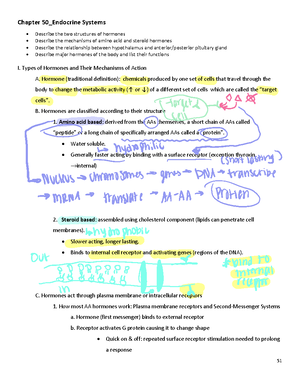 Chapter 50_Endocrine Systems
• Describe the two structures of hormones
• Describe the mechanisms of amino acid and steroid hormones
• Describe the relationship between hypothalamus and anterior/posterior pituitary gland
• Describe major hormones of the body and list their functions
I. Types of Hormones and Their Mechanisms of Action
A. Hormone (traditional definition): chemicals produced by one set of cells that travel through the
body to change the metabolic activity (↑ or ↓) of a different set of cells which are called the "target
cells".
target
cell
B. Hormones are classified according to their structure
1. Amino acid based: derived from the AAs hormones, a short chain of AAs called
"peptide" or a long chain of specifically arranged AAs called a "protein".
• Water soluble. hydrophilic
• Generally faster acting by binding with a surface receptor (exception thyroid
—internal)
(short lasting)
Nucleus → chromosomes → genes → DNA → transcribe
→ mRNA → translate → AA-AA → Protein
2. Steroid based: assembled using cholesterol component (lipids can penetrate cell
membranes). hydrophobic
• Slower acting, longer lasting.
• Binds to internal cell receptor and activating genes (regions of the DNA).
Out
in
bind to
internal
recept
C. Hormones act through plasma membrane or intracellular receptors
1. How most AA hormones work: Plasma membrane receptors and Second-Messenger Systems
a. Hormone (first messenger) binds to external receptor
b. Receptor activates G protein causing it to change shape
• Quick on & off: repeated surface receptor stimulation needed to prolong
a response
51